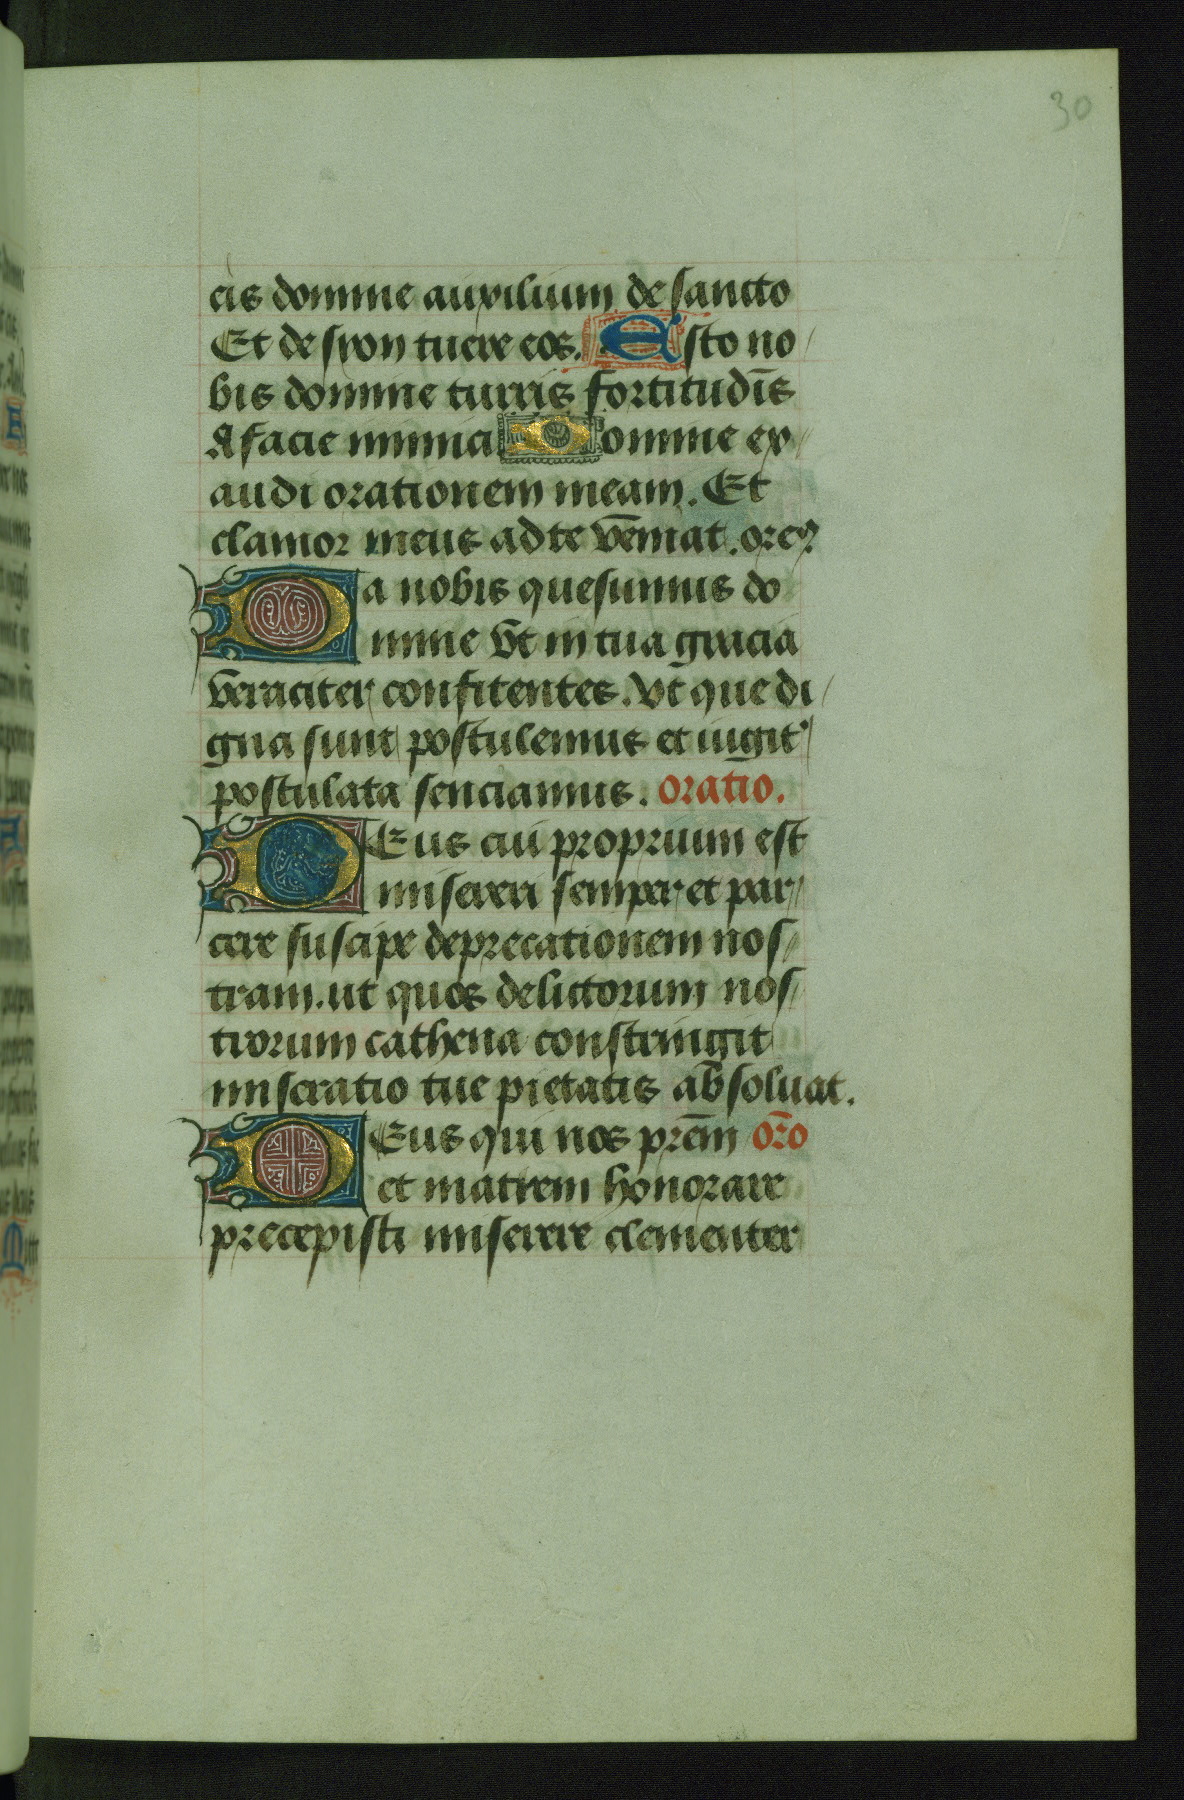 30
eis domine auxilium de sancto
Et de syon tuere eos. Esto no
bis domine turris fortitudīs
A facie inimici Domine ex
audi orationem meam. Et
clamor meus ad te vēniat. orem9
Da nobis quesumus do
mine vt in tua gracia
veraciter confitentes. vt que di
gna sunt postulemus et iugit᾽
postulata senciamus. oratio.
DEus cui proprium est
misereri semper et par
cere suscipe deprecationem nos
tram. ut quos delictorum nos
trorum cathena constringit
miseratio tue pietatis absoluat.
DEus qui nos prēm orō
et matrem honorare
precepisti miserere clementer